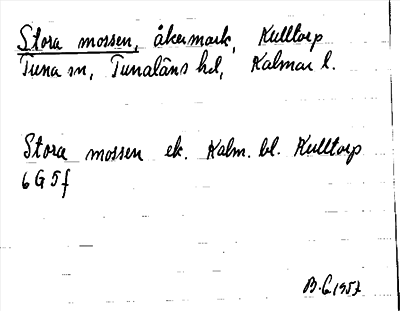 Stora mossen, åkermark, Kulltorp
Tuna sn, Tunaläns hd, Kalmar l.
Stora mossen ek. Kalm. bl. Kulltorp
6 G 5 f
B.G. 1957